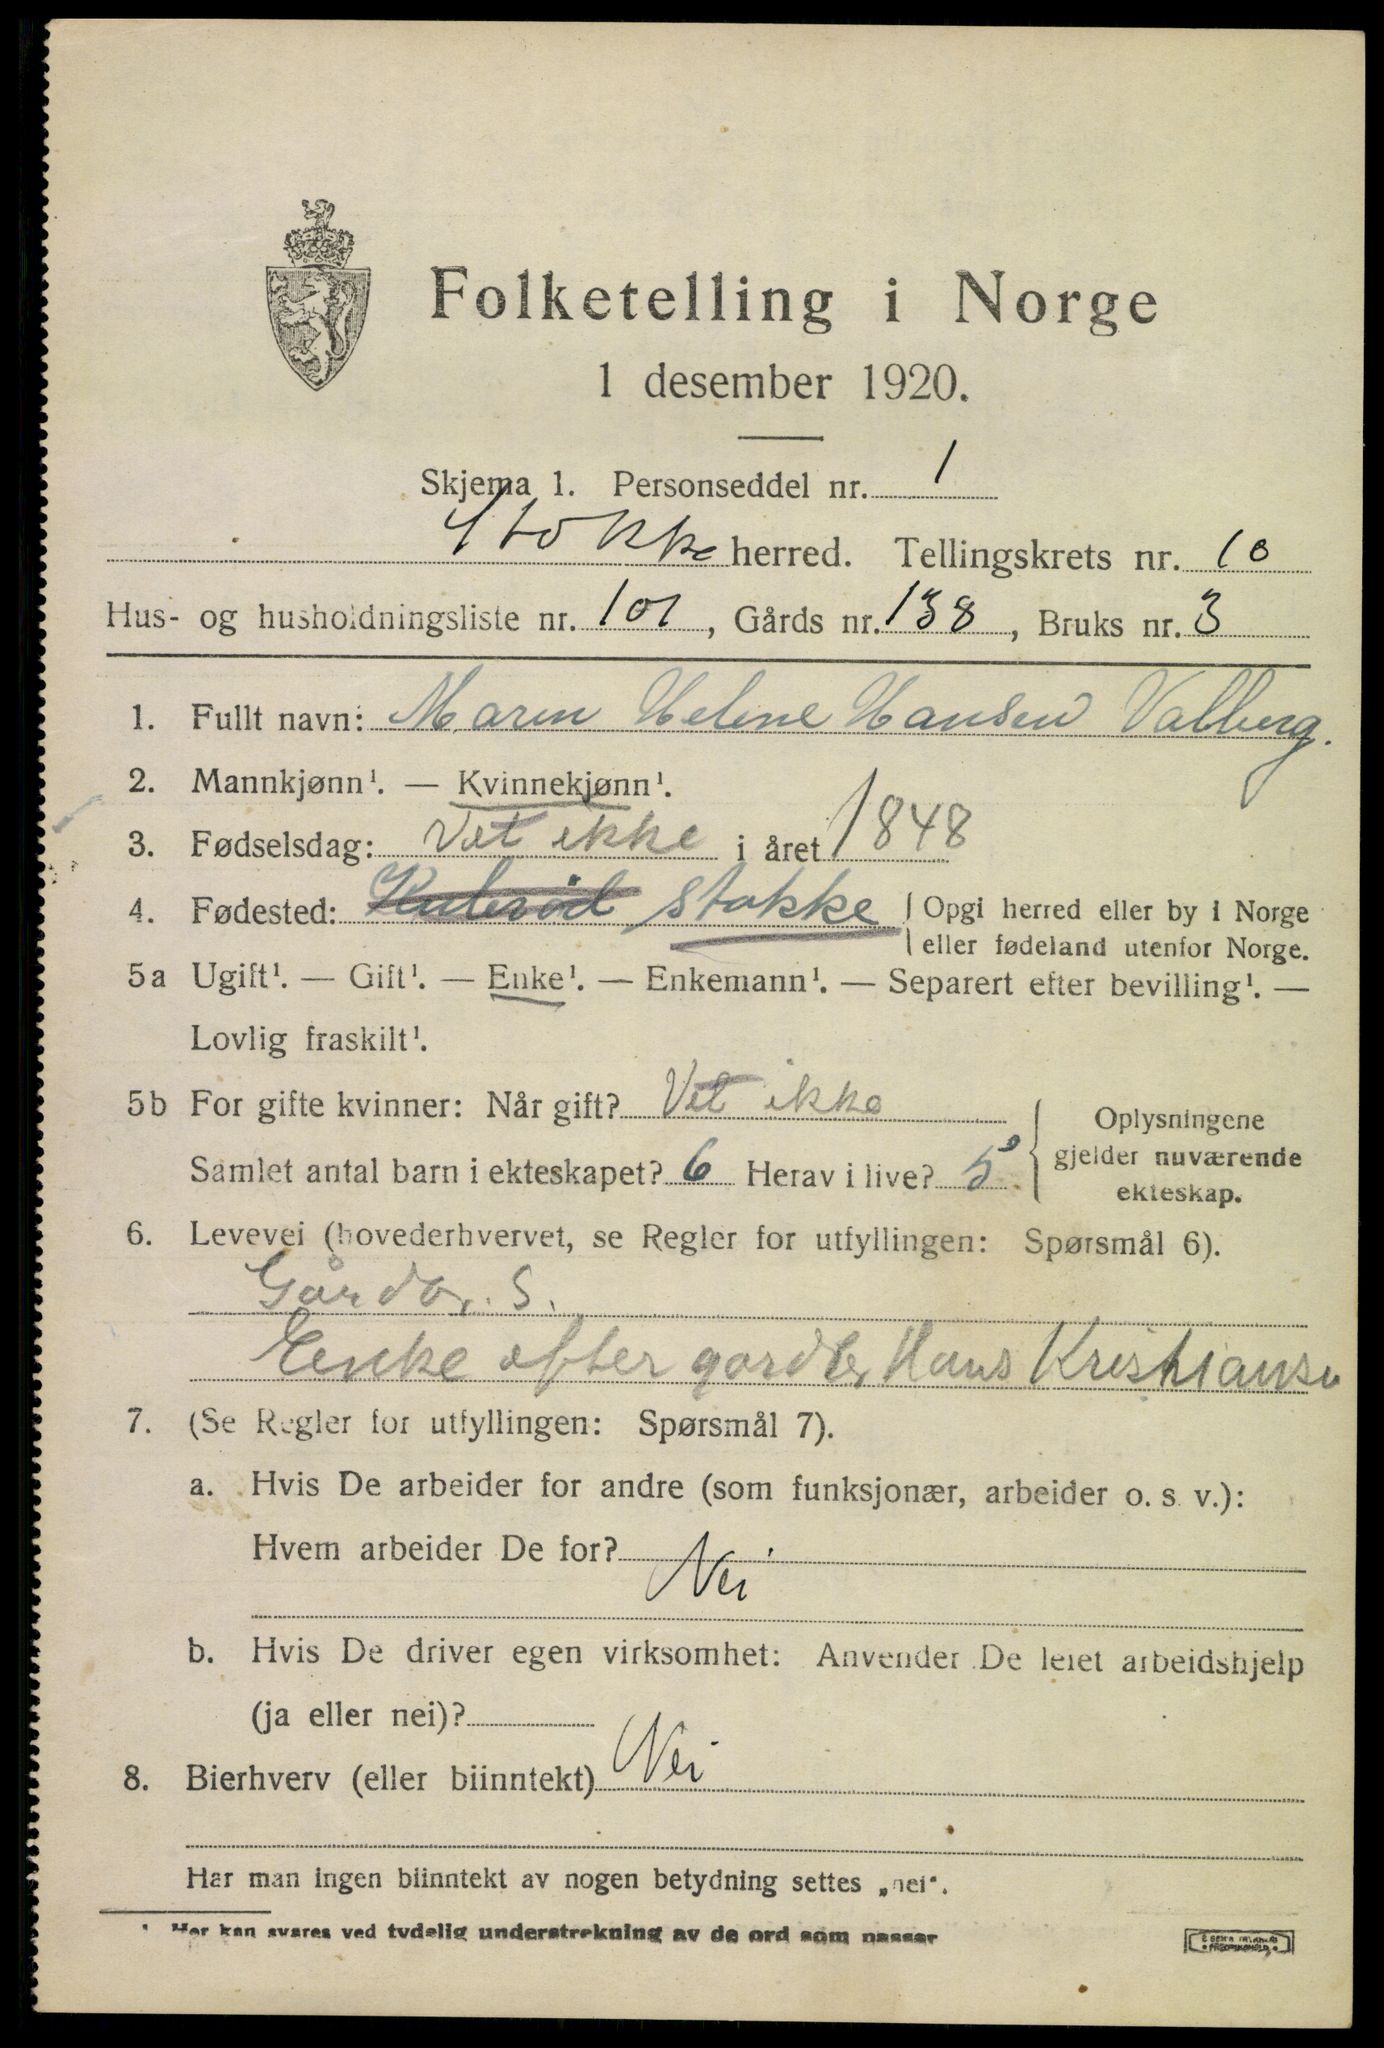 Folketelling i Norge
1 desember 1920.
Skjema 1. Personseddel nr. 1
Stokke herred. Tellingskrets nr. 10
Hus- og husholdningsliste nr. 101, Gårds nr. 138, Bruks nr. 3
1. Fullt navn: Maren Helene Hansen Valberg.
2. Mannkjønn¹. — Kvinnekjønn¹.
3. Fødselsdag: Vet ikke i året 1848
4. Fødested: Kulerød Stokke Opgi herred eller by i Norge
eller fødeland utenfor Norge.
5a Ugift¹. — Gift¹. — Enke¹. — Enkemann¹. — Separert efter bevilling¹. —
Lovlig fraskilt¹.
5b For gifte kvinner: Når gift? Vet ikke
Samlet antal barn i ekteskapet? 6 Herav i live? 5
Oplysningene
gjelder nuværende
ekteskap.
6. Levevei (hovederhvervet, se Regler for utfyllingen: Spørsmål 6).
Gårdbr. S.
Enke efter gardbr Hans Kristiansen
7. (Se Regler for utfyllingen: Spørsmål 7).
a. Hvis De arbeider for andre (som funksjonær, arbeider o. s v.):
Hvem arbeider De for?
Nei
b. Hvis De driver egen virksomhet: Anvender De leiet arbeidshjelp
(ja eller nei)?
8. Bierhverv (eller biinntekt) Nei
Har man ingen biinntekt av nogen betydning settes „nei“.
¹ Her kan svares ved tydelig understrekning av de ord som passer